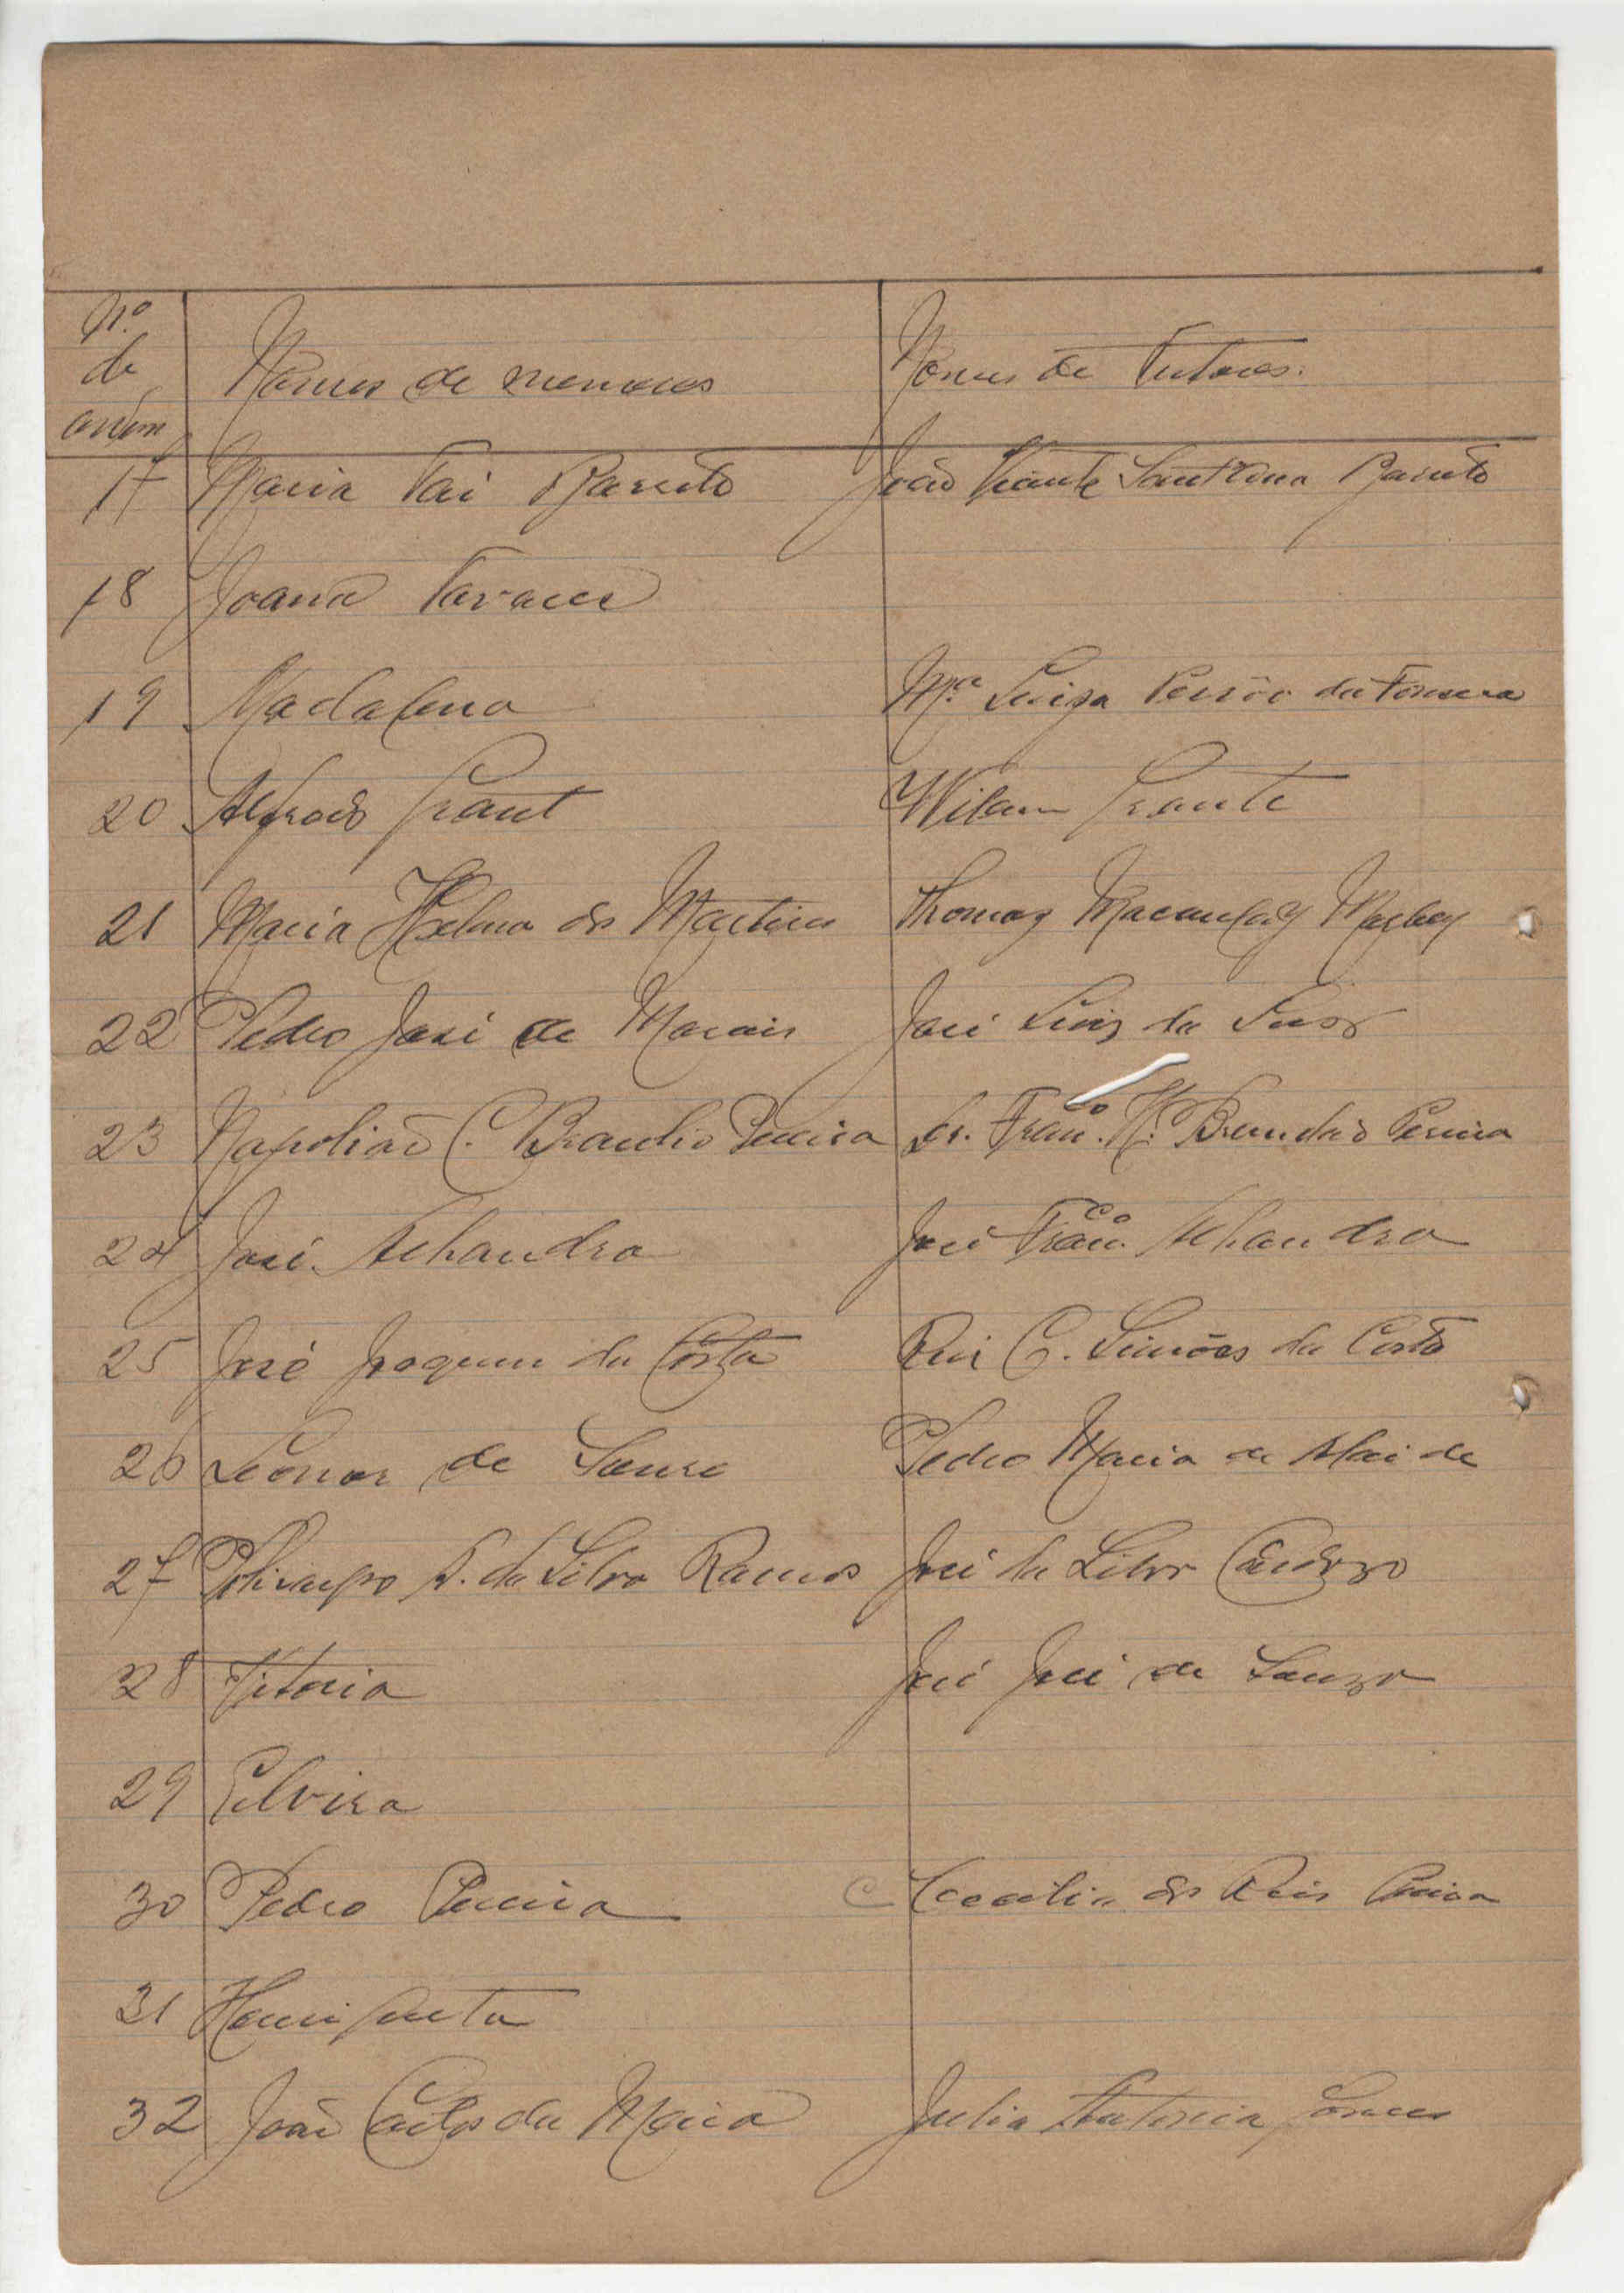 Nº de ordem Nomes de menores Nomes de Tutores.
17 Maria Barreto João Vicente Sant'Anna Barreto
18 Joana Tavares
19 Madalena Mª Luiza da Fonseca
20 Alfredo Grant Grante
21 Maria Helena dos Martires Thomaz Macaulay
22 Pedro José de Morais José Luiz da
23 Napolião C. Brandão Pereira Dr. Franco. H. Brandão Pereira
24 José Achandra José Franco. Achandra
25 José Joaquim da Costa Rui C. Simões da Costa
26 Leonor de Souza Pedro Maria de
27 Policarpo A. da Silva Ramos José da Silva Cardozo
28 Vitoria José José de Souza
29 Elvira
30 Pedro Pereira dos Reis Pereira
31 Henriqueta
32 João Carlos da Maia Julia Antonia Gomes